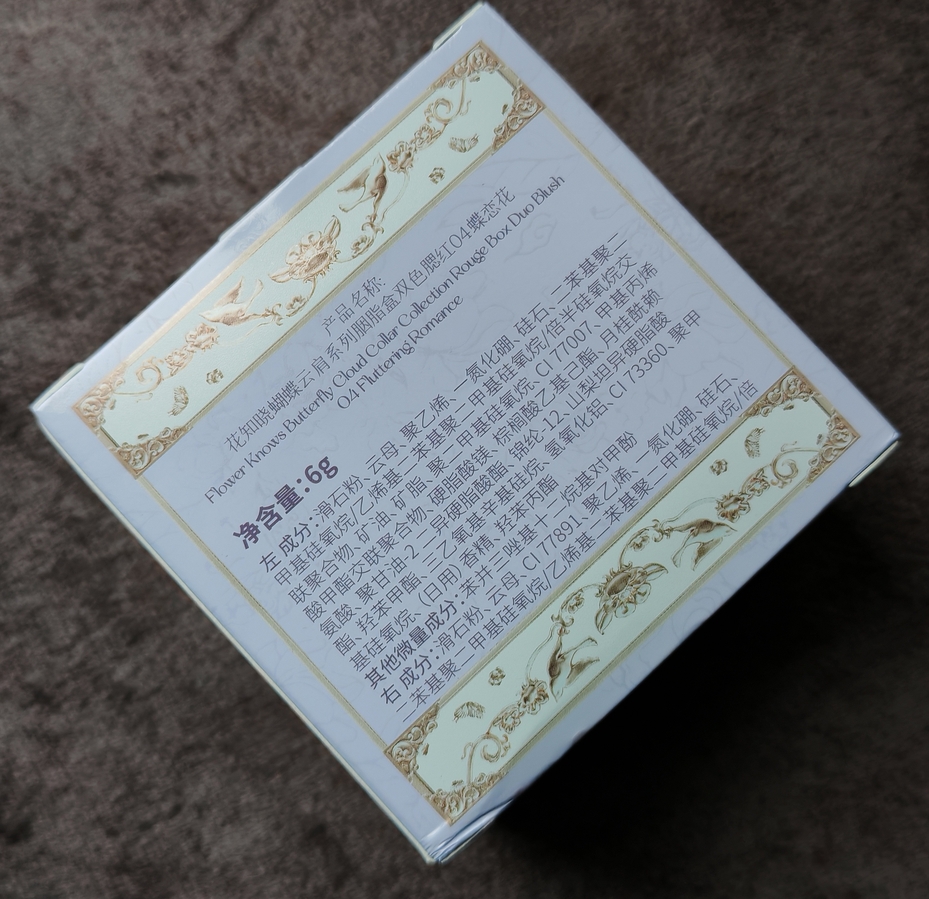 产品名称:
花知晓蝴蝶云肩系列胭脂盒双色腮红04蝶恋花
Flower Knows Butterfly Cloud Collar Collection Rouge Box Duo Blush
04 Fluttering Romance
净含量:6g
左 成分:滑石粉、云母、聚乙烯、一氮化硼、硅石、二苯基聚二
甲基硅氧烷/乙烯基二苯基聚二甲基硅氧烷/倍半硅氧烷交
联聚合物、矿油、矿脂、聚二甲基硅氧烷、CI 77007、甲基丙烯
酸甲酯交联聚合物、硬脂酸镁、棕榈酸乙基己酯、月桂酰赖
氨酸、聚甘油-2 三异硬脂酸酯、锦纶-12、山梨坦异硬脂酸
酯、羟苯甲酯、三乙氧基辛基硅烷、氢氧化铝、CI 73360、聚甲
基硅氧烷、(日用)香精、羟苯丙酯
其他微量成分:苯并三唑基十二烷基对甲酚
右 成分:滑石粉、云母、CI 77891、聚乙烯、一氮化硼、硅石、
二苯基聚二甲基硅氧烷/乙烯基二苯基聚二甲基硅氧烷/倍